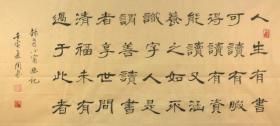 人生有書
可讀有暇
得讀有資
能讀又涵
養之如不
識字人是
謂善讀書
者享世間
清福未有
過于此者
小窗幽記